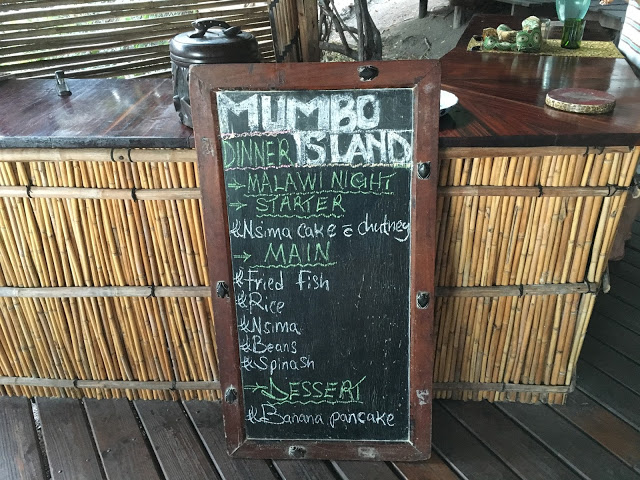 MUMBO
DINNER ISLAND
→ MALAWI NIGHT
→ STARTER
* Nsima cake c̄ chutney
→ MAIN
* Fried fish
* Rice
* Nsima
* Beans
* Spinash
→ DESSERT
* Banana pancake